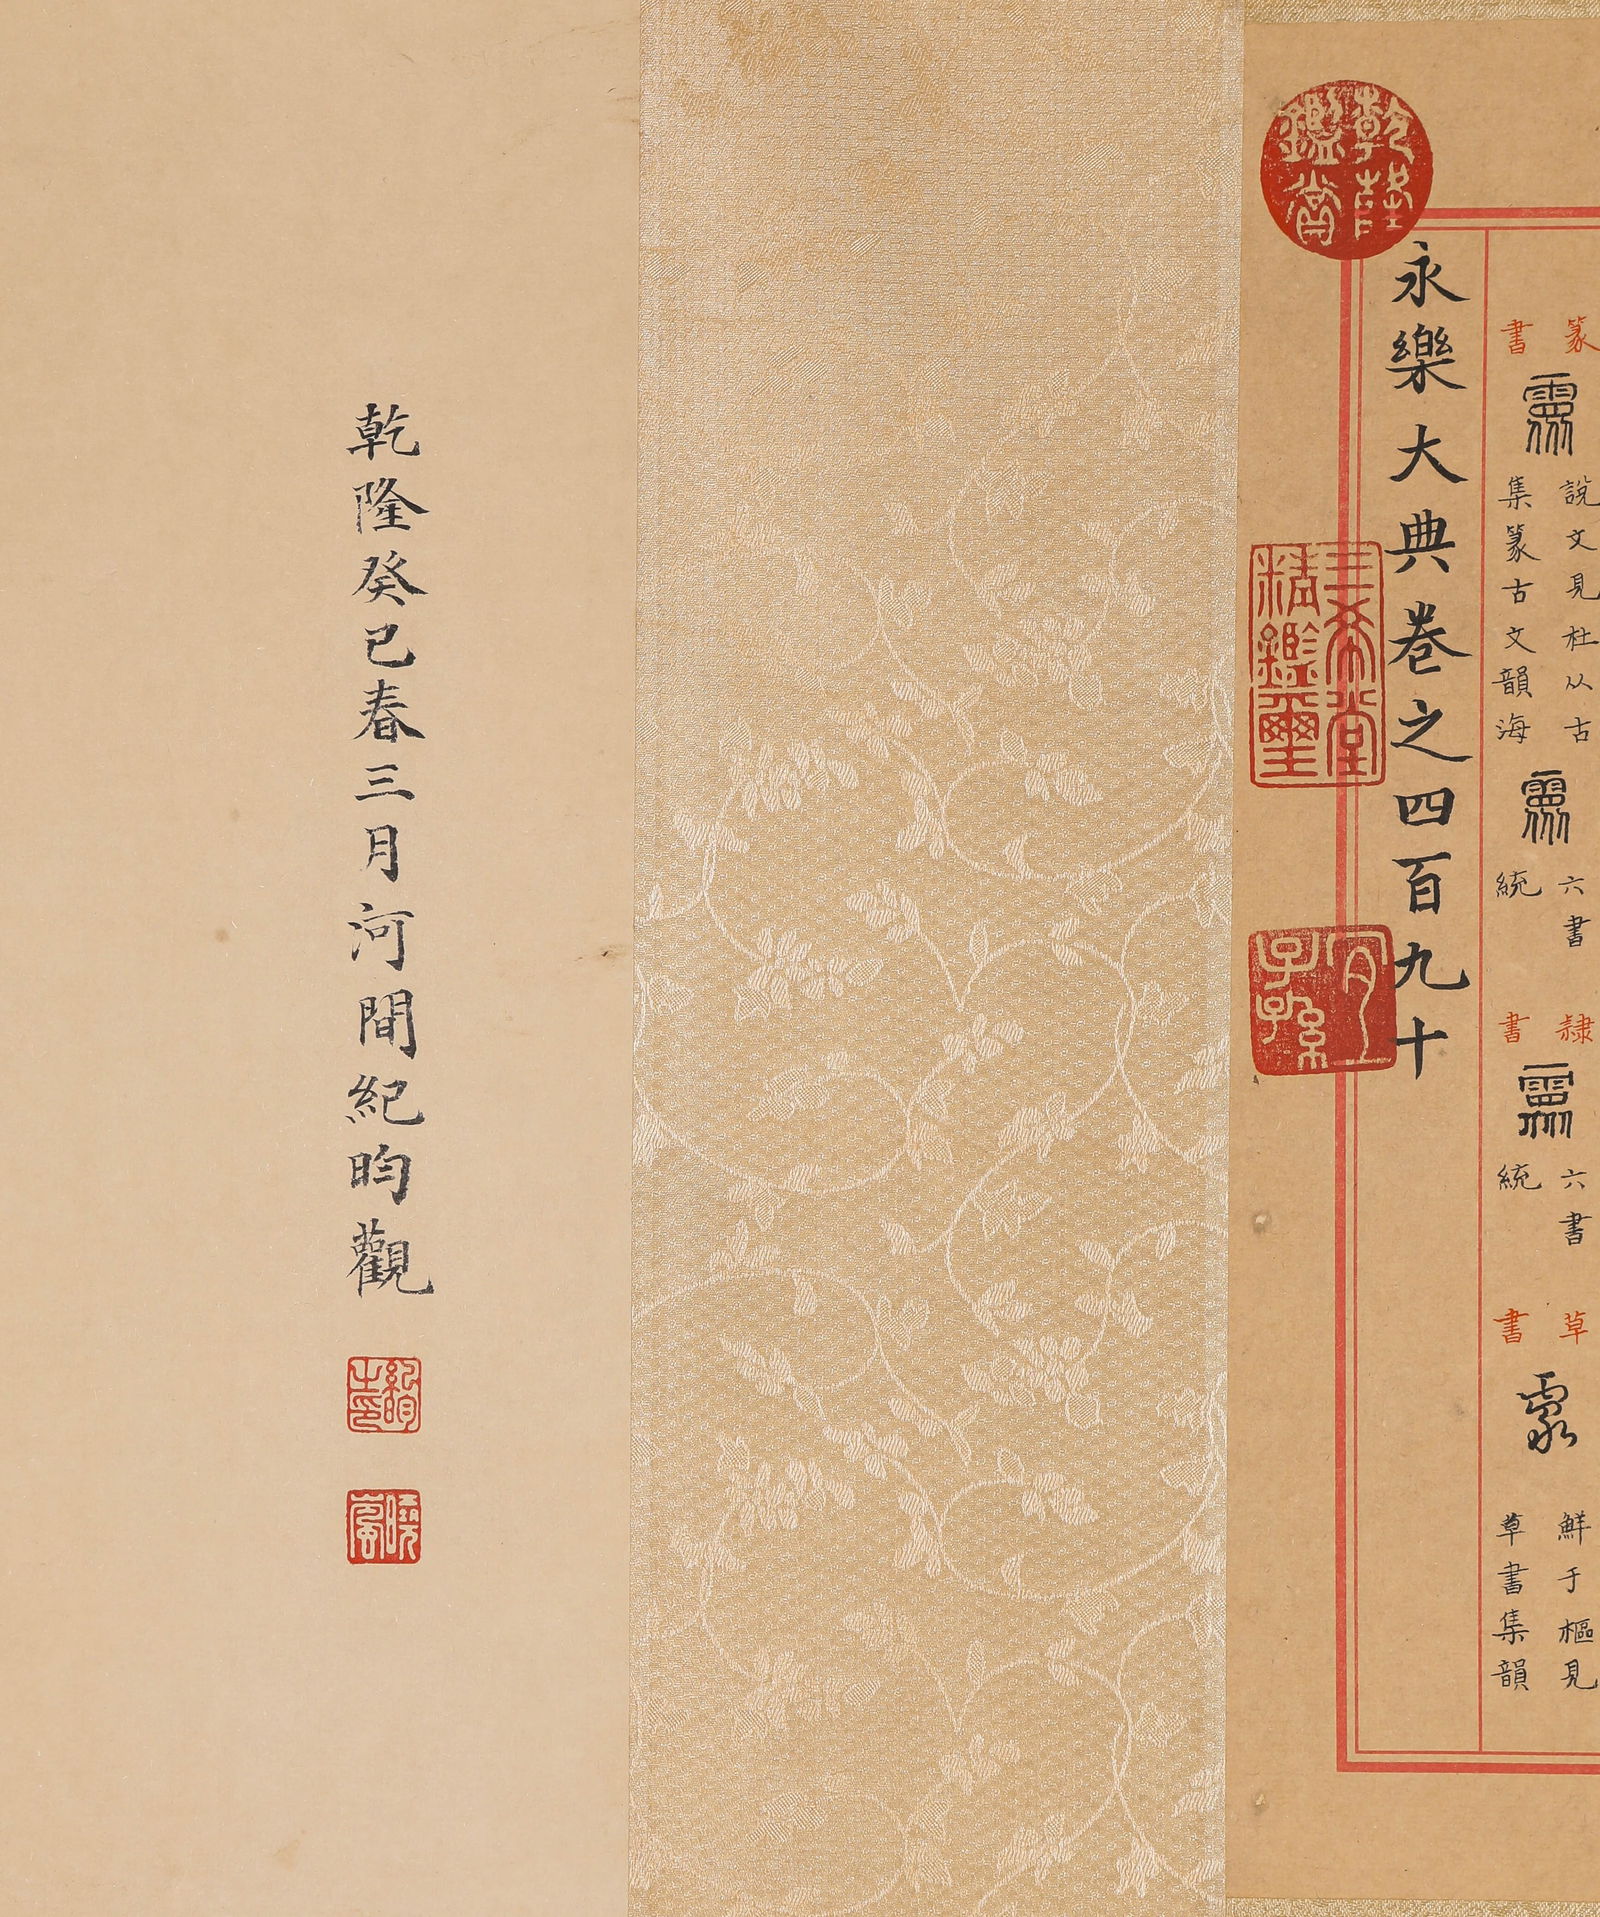 篆書
說文見杜从古
集篆古文韻海
六書
統
隷書
六書
統
草書
鮮于樞見
草書集韻
永樂大典卷之四百九十
乾隆鑑賞
三希堂
精鑑璽
宜
子孫
乾隆癸巳春三月河間紀昀觀
紀昀
之印
曉嵐